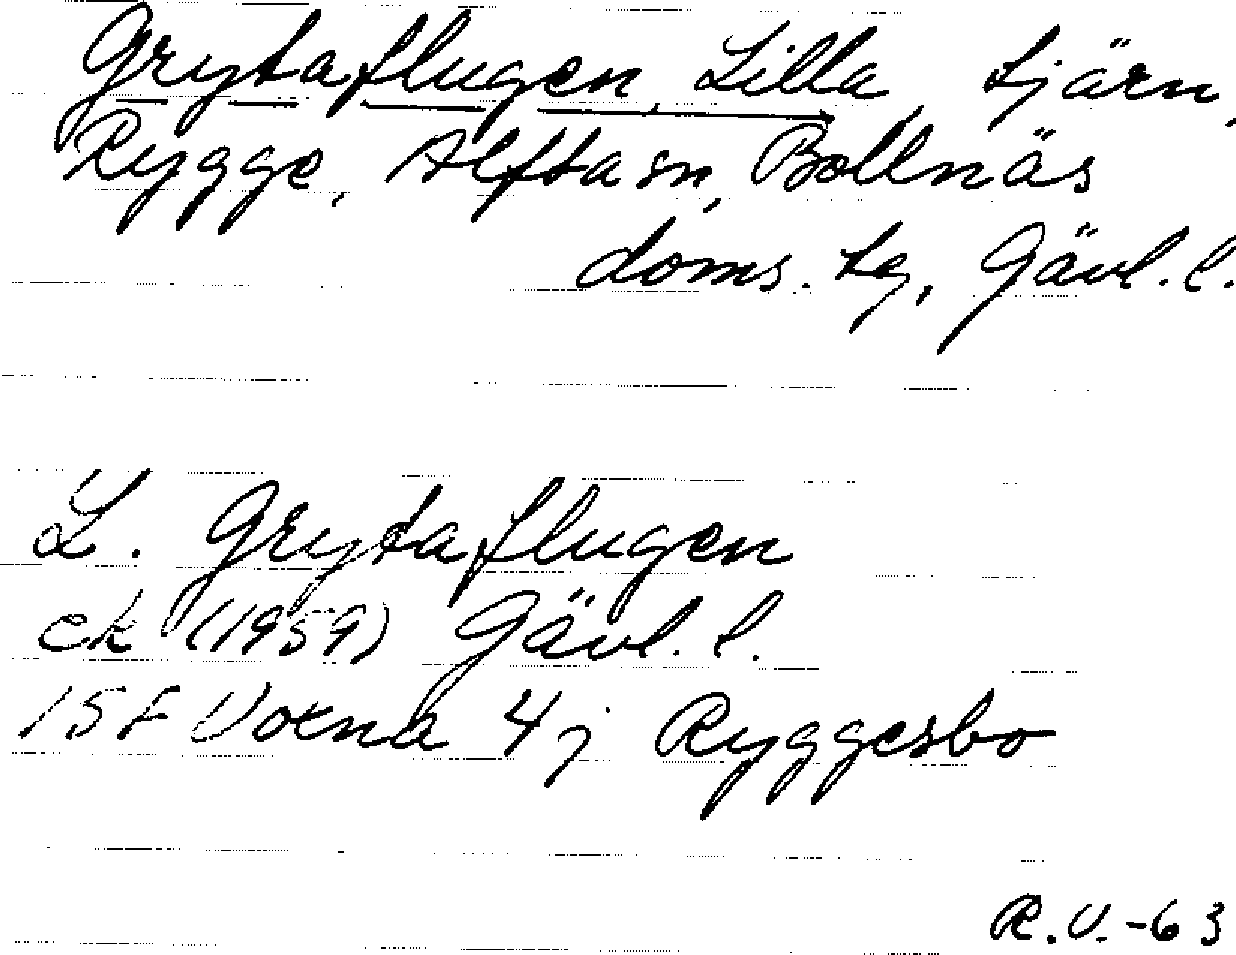 Grytaflugen, Lilla, tjärn,
Rygge, Alfta sn, Bollnäs
doms. tg, Gävl. l.
L. Grytaflugen
ek (1959) Gävl. l.
15F Voxna 4j Ryggesbo
R.V.-63